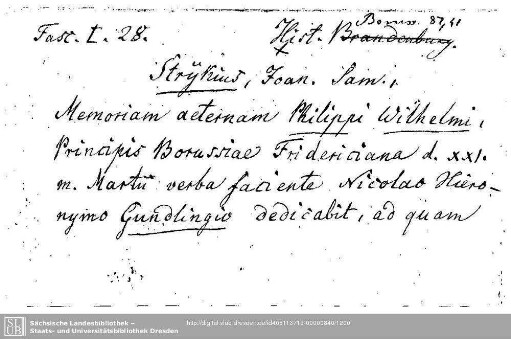 Fasc. t. 28. Hist. Boruss. 87,41
Brandenburg.
Strÿkius, Joan. Sam.,
Memoriam aeternam Philippi Wilhelmi,
Principis Borussiae Fridericiana d. xxI.
m. Martii verba faciente Nicolao Hiero-
nymo Gundlingio dedicabit, ad quam
SLUB
Sächsische Landesbibliothek –
Staats- und Universitätsbibliothek Dresden